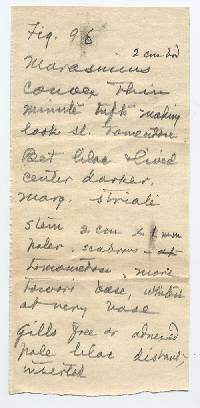 Fig. 96
2 cm brd
Marasmius
convex thin
minute tufts making
look sl. tomentose
Bet lilac & livid
center darker,
marg. striate
Stem 2 cm x 1 mm
paler, scabrous - st
tomentose, more
toward base, whitish
at very base
Gills free or adnexed
pale lilac distant,
inserted